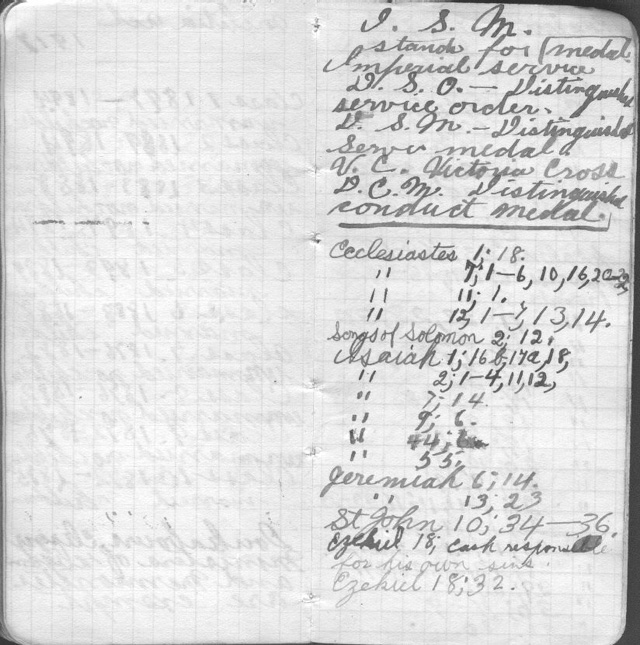 I. S. M.
stands for medal.
Imperial service
D. S. O. — Distinguished
service order.
D. S. M. — Distinguished
Serv medal.
V. C. Victoria Cross
D. C. M. Distinguished
conduct medal.
Ecclesiastes 1; 18.
" 7; 1—6, 10, 16, 20-22,
" 11; 1.
" 12, 1—7, 13, 14.
Songs of Solomon 2; 12.
Isaiah 1; 16b, 17a, 18,
" 2; 1—4, 11, 12,
" 7; 14
" 9; 6.
" 44; 6
" 55;
Jeremiah 6; 14.
" 13; 23
St John 10; 34—36.
Ezekiel 18; Each responsible
for his own sins.
Ezekiel 18; 32.